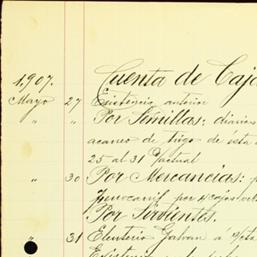 1,907. Cuenta de Caja
Mayo 27 Existencia anterior
" " Por Semillas: diarios
acarreo de trigo de esta
25 al 31 actual
" 30 Por Mercancías:
Ferrocarril, por 4 cajas
Por Sirvientes.
" 31 Eleuterio Galvan a